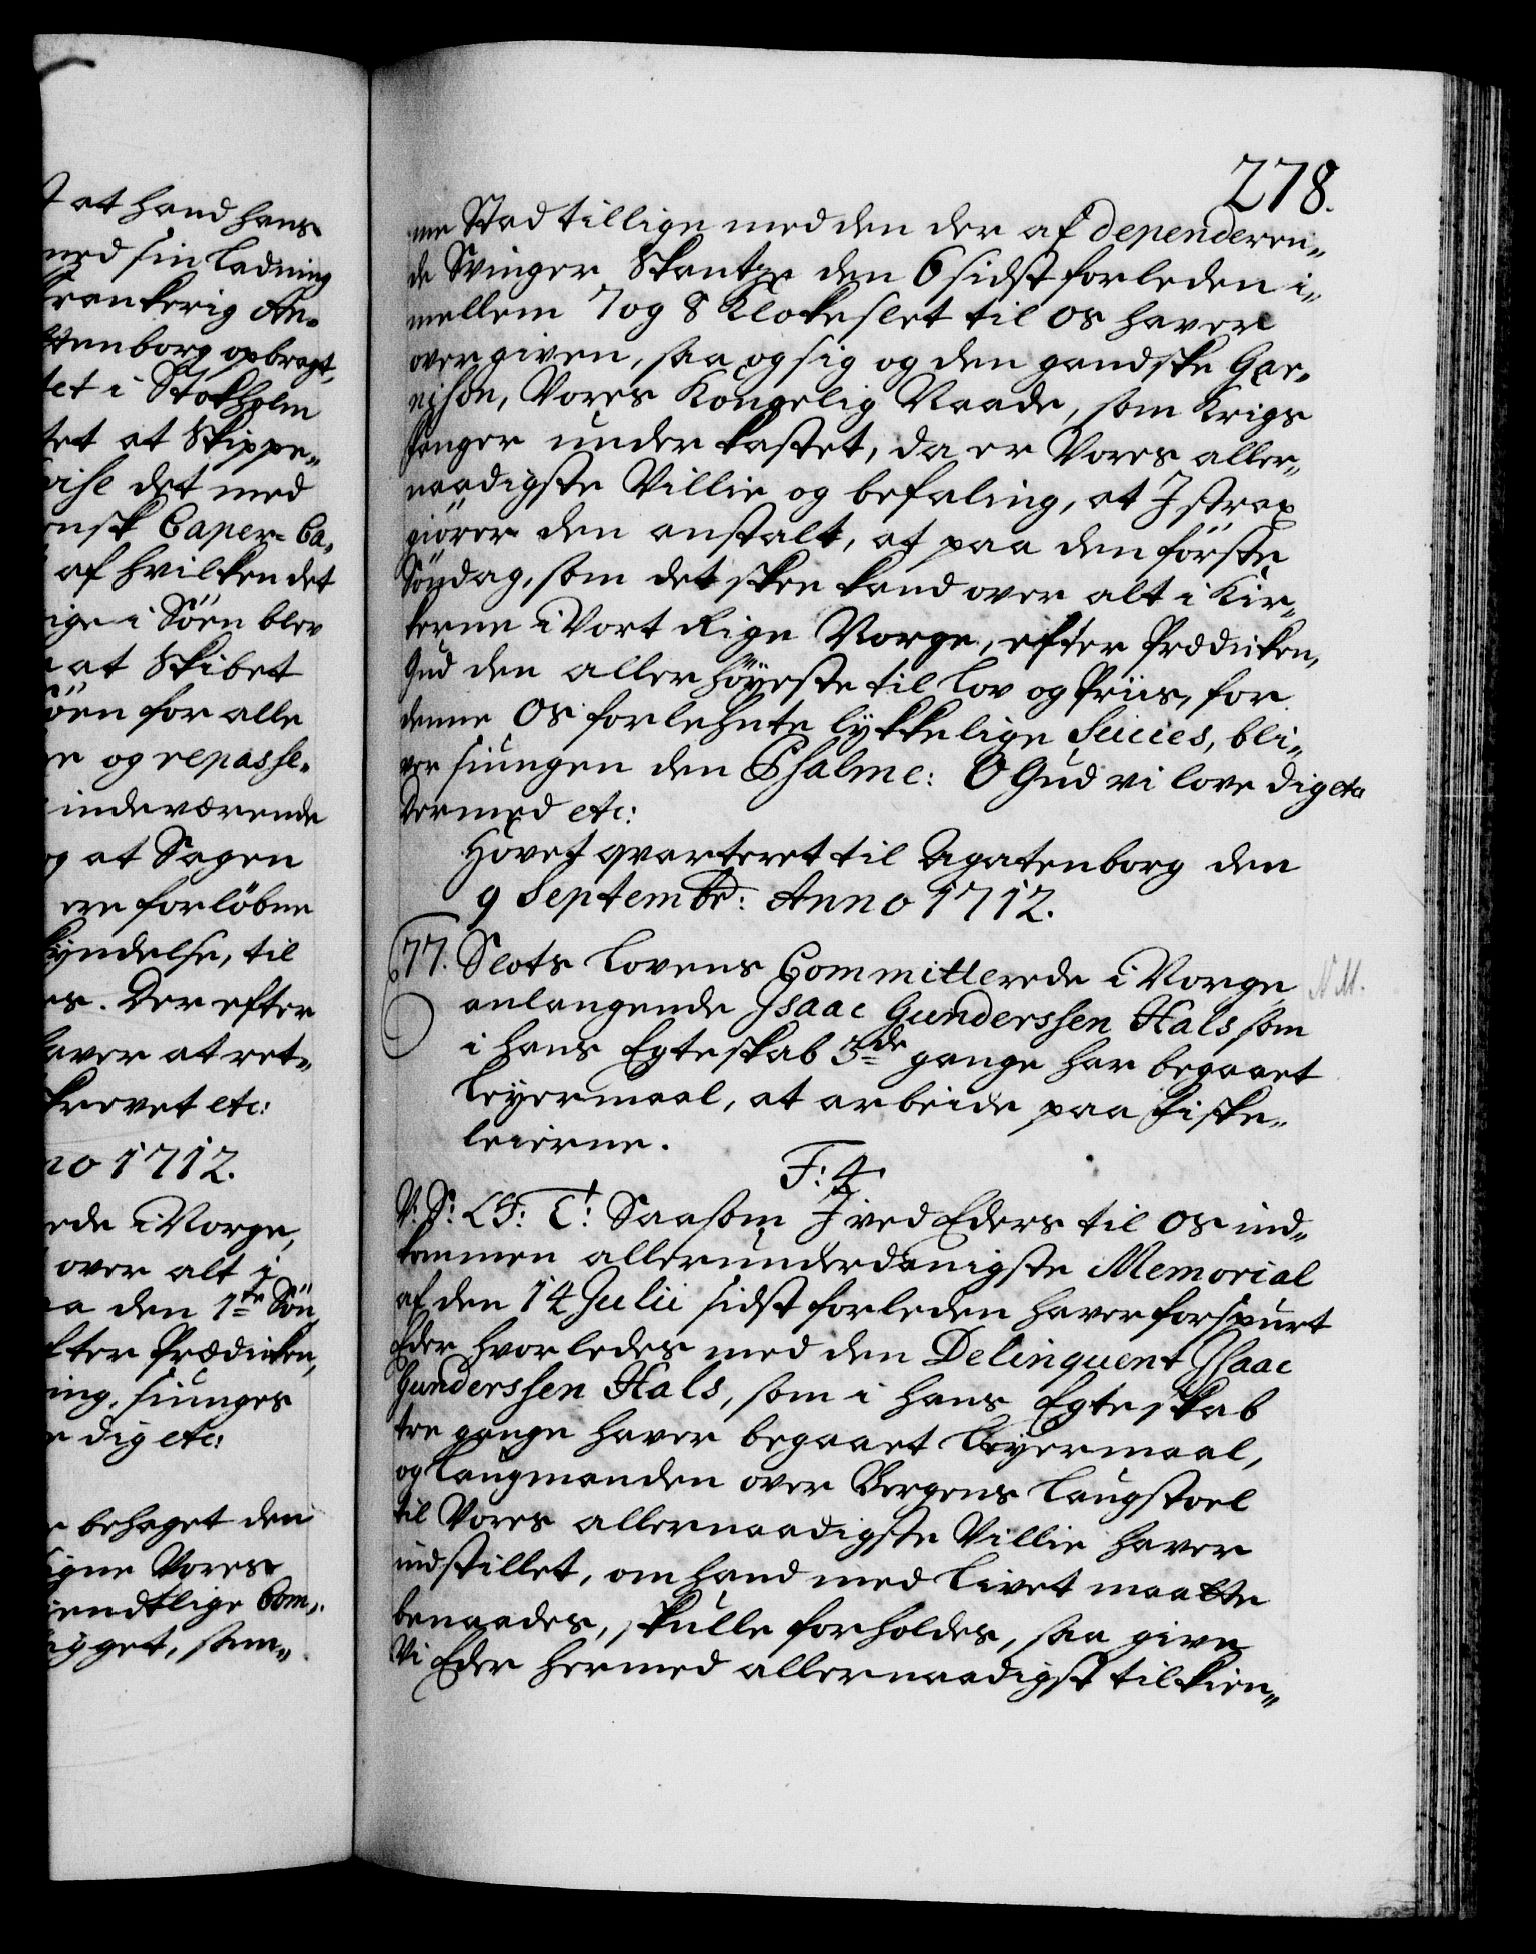 t at hand hans
med sin ladning
Frankerig An-
ttenborg opbragt,
tet i Stokholm
tet at Skippe-
vise det med
ensk Caper-Ca-
af hvilken det
ige i Söen blev
at Skibet
öen for alle
er og repasse-
indeværende
og at Sagen
ere forløbne
kyndelse, til
es. Der efter
haver at ret-
skrevet etc:
no 1712.
rede i Norge,
over alt i
aa den 1te Søn
efter Prædicken,
ing, siunges
e dig etc:
behaget den
igne Vores
iendtlige Com-
ygget, sam-
278.
me Stad tillige med den der af dependeren-
de Svinger Skantze den 6 sidst forleden i-
mellem 7 og 8 Klokeslet til os haver
overgiven, saa og sig og den gandske Gar-
nison, Vores Kongelig Naade, som Krigs
fanger underkastet, da er Vores aller-
naadigste Villie og befaling, at I strax
giörer den anstalt, at paa den förste
Söndag, som det skee kand over alt i Kir-
kerne i Vort Rige Norge, efter Prædicken,
Gud den allerhöyeste til lov og Priis, for
denne Os forlehnte lykkelige Succes, bli-
ver siungen den Psalme: O Gud vi love dig etc
Dermed etc:
Hovet qvarteret til Agatenborg den
9 Septembr: Anno 1712.
77. Slots Lovens Committerede i Norge, N M.
anlangende Isaac Gunderssen Hals som
i hans Egteskab 3de gange har begaaet
Leyermaal, at arbeide paa Fiske-
leierne.
F: 4.
V: S: L F: T: Saasom I ved Eders til os ind-
kommen allerunderdanigste Memorial
af den 14 Julii sidst forleden haver forspurt
Eder hvorledes med den Delinquent Isaac
Gunderssen Hals, som i hans Egteskab
tre gange haver begaaet Leyermaal,
og Laugmanden over Bergens Laugstoel
til Vores allernaadigste Villie haver
indstillet, om hand med Livet maatte
benaades, skulle forholdes, saa give
Vi Eder hermed allernaadigst tilkien-